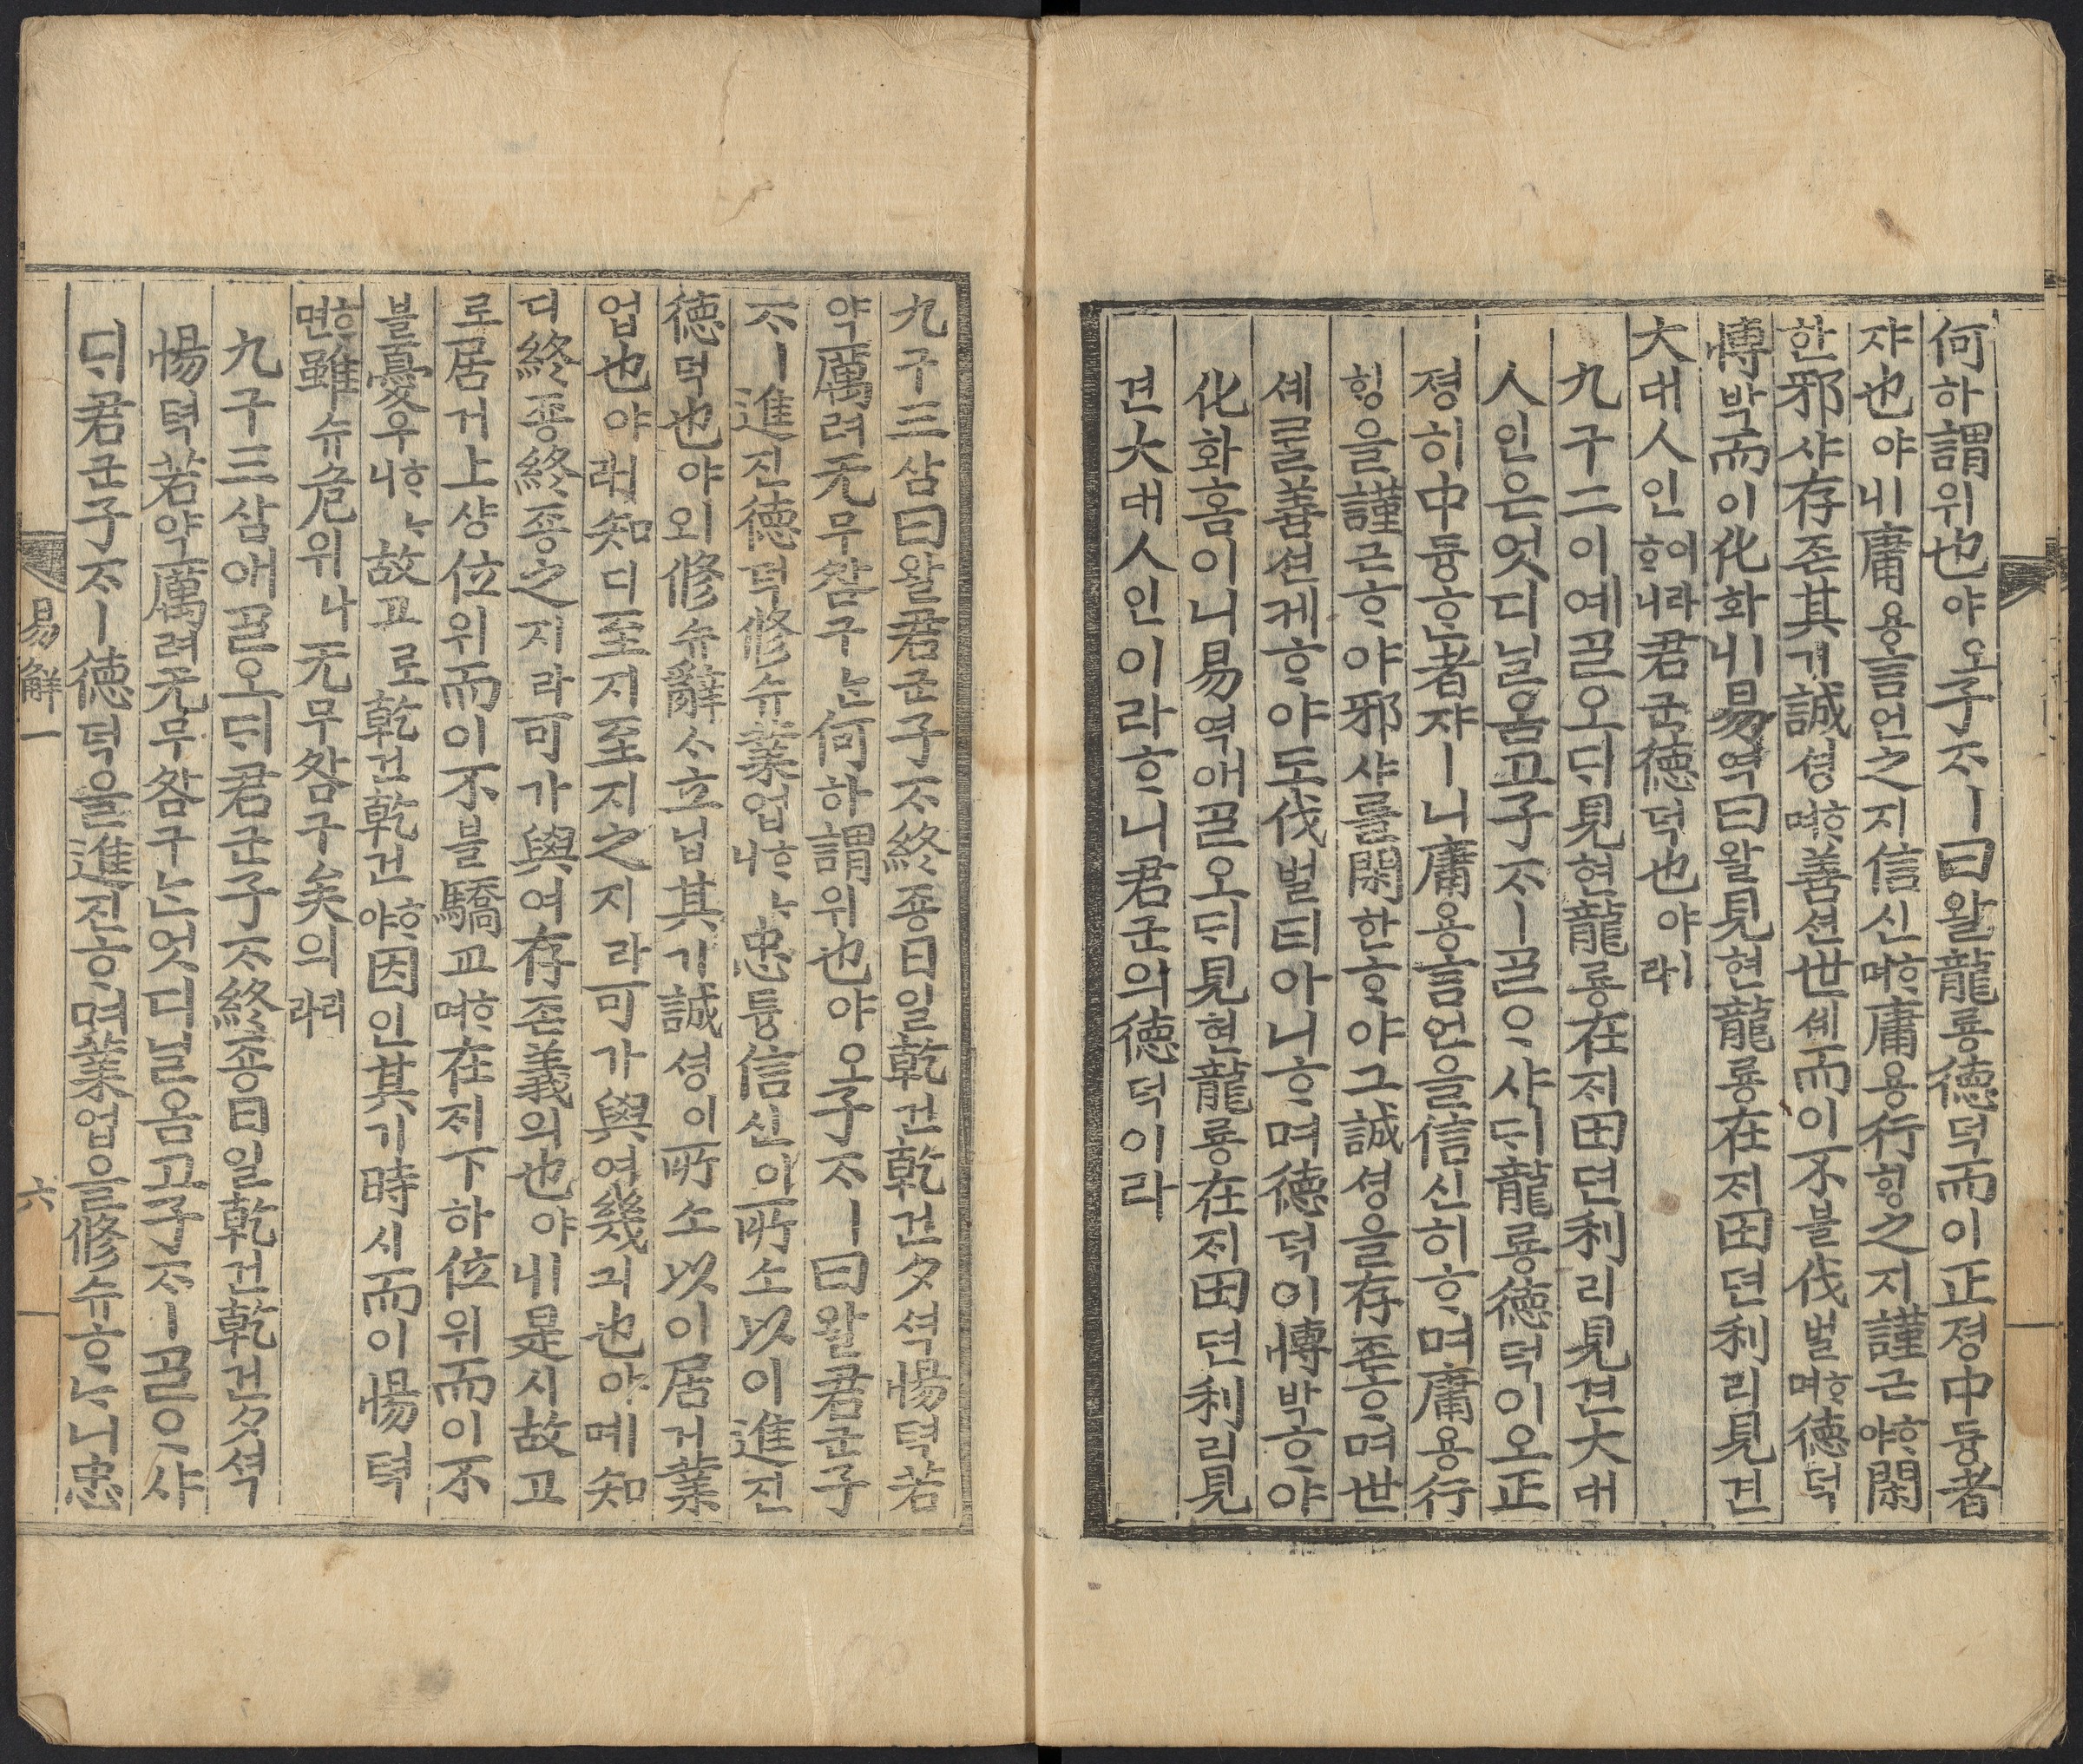 何하謂위也야오子ᄌᆞㅣ曰왈龍룡德덕而이正졍中듕者
쟈也야ㅣ니庸용言언之지信신ᄒᆞ며庸용行ᄒᆡᆼ之지謹근ᄒᆞ야閑
한邪샤存존其기誠셩ᄒᆞ며善션世셰而이不블伐벌ᄒᆞ며德덕
博박而이化화ㅣ니易역曰왈見현龍룡在ᄌᆡ田뎐利리見견
大대人인이라ᄒᆞ니君군德덕也야ㅣ라
九구二이예ᄀᆞᆯ오ᄃᆡ見현龍룡在ᄌᆡ田뎐利리見견大대
人인은엇디닐옴고子ᄌᆞㅣᄀᆞᆯᄋᆞ샤ᄃᆡ龍룡德덕이오正
졍히中듕ᄒᆞᆫ者쟈ㅣ니庸용言언을信신히ᄒᆞ며庸용行
ᄒᆡᆼ을謹근ᄒᆞ야邪샤ᄅᆞᆯ閑한ᄒᆞ야그誠셩을存존ᄒᆞ며世
셰ᄅᆞᆯ善션케ᄒᆞ야도伐벌티아니ᄒᆞ며德덕이博박ᄒᆞ야
化화홈이니易역애ᄀᆞᆯ오ᄃᆡ見현龍룡在ᄌᆡ田뎐利리見
견大대人인이라ᄒᆞ니君군의德덕이라
九구三삼曰왈君군子ᄌᆞ終죵日일乾건乾건夕셕惕텩若
약厲려无무咎구ᄂᆞᆫ何하謂위也야오子ᄌᆞㅣ曰왈君군子
ᄌᆞㅣ進진德덕脩슈業업ᄒᆞᄂᆞ니忠튱信신이所소以이進진
德덕也야ㅣ오脩슈辭ᄉᆞ立닙其기誠셩이所소以이居거業
업也야ㅣ라知디至지至지之지라可가與여幾긔也야ㅣ며知
디終죵終죵之지라可가與여存존義의也야ㅣ니是시故고
로居거上샹位위而이不블驕교ᄒᆞ며在ᄌᆡ下하位위而이不
블憂우ᄒᆞᄂᆞ니故고로乾건乾건ᄒᆞ야因인其기時시而이惕텩
ᄒᆞ면雖슈危위나无무咎구矣의리라
九구三삼애ᄀᆞᆯ오ᄃᆡ君군子ᄌᆞ終죵日일乾건乾건夕셕
惕텩若약厲려无무咎구ᄂᆞᆫ엇디닐옴고子ᄌᆞㅣᄀᆞᆯᄋᆞ샤
ᄃᆡ君군子ᄌᆞㅣ德덕을進진ᄒᆞ며業업을脩슈ᄒᆞᄂᆞ니忠
易解一 六